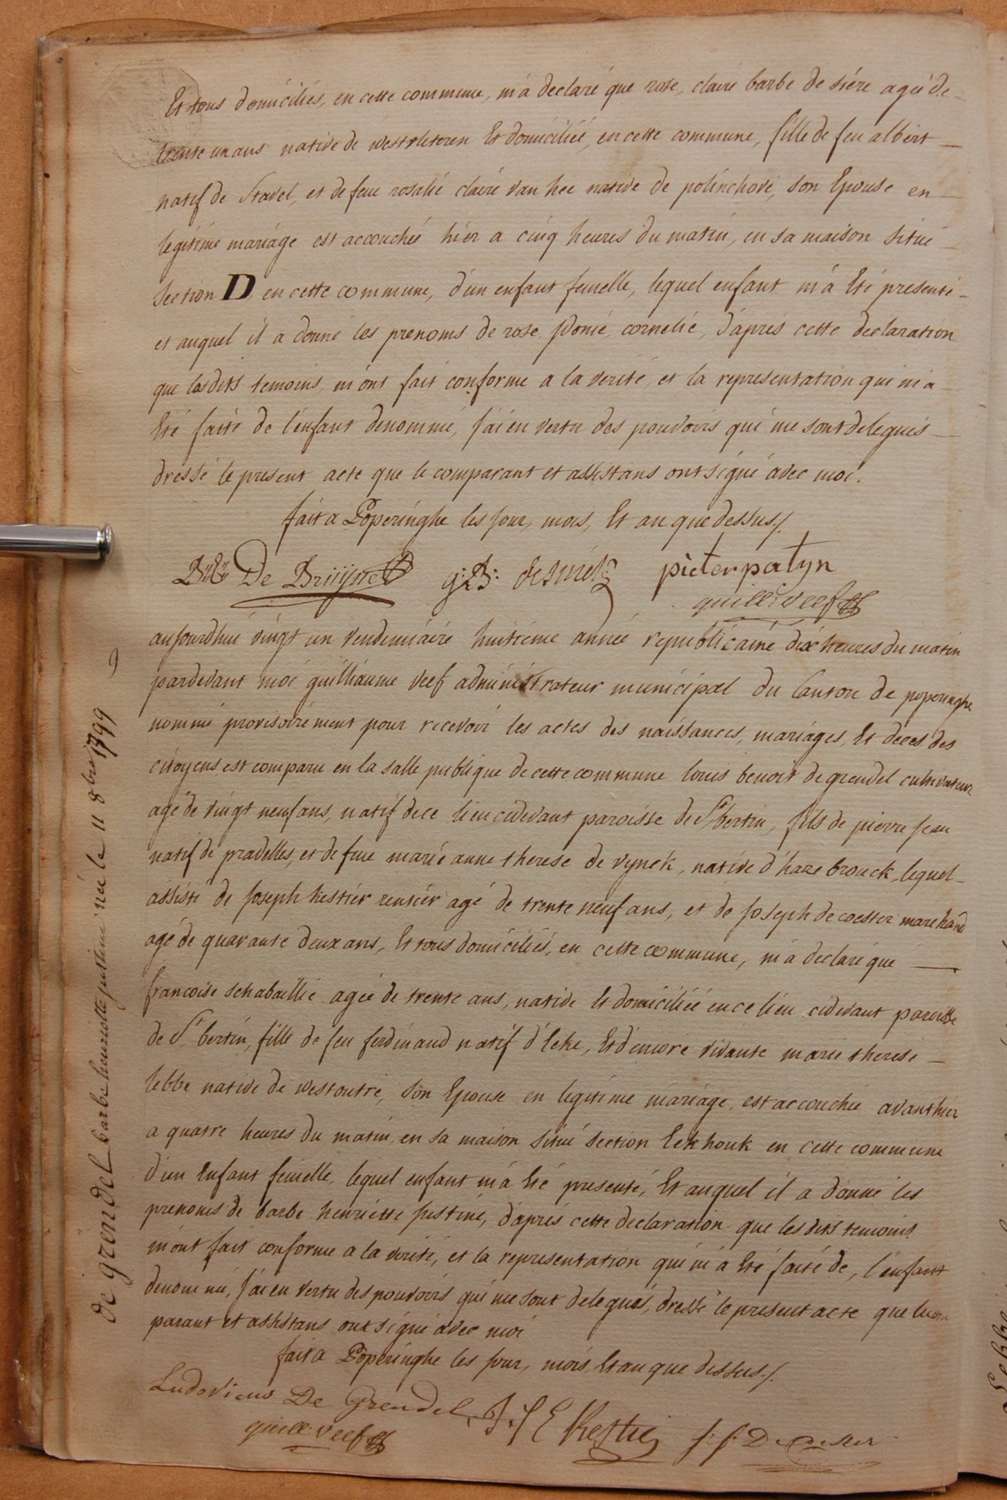 Et tous domiciliés, en cette commune, m'a declaré que rose, claire barbe de siére agée de
trente un ans native de westvleteren Et domiciliée, en cette commune, fille de feu albert
natif de Stavel, et de feue rosalie claire van hee native de polinchove, son Epouse en
legitime mariage est accouchée hier a cinq heures du matin, en sa maison situé
section D en cette commune, d'un enfant femelle, lequel enfant m'a Eté presenté
et auquel il a donné les prenoms de rose cornelie, d'aprés cette declaration
que les dits temoins m'ont fait conforme a la verité, et la representation qui m'a
Eté faite de l'enfant denommé, j'ai en vertu des pouvoirs qui me sont delegués
dressé le present acte que le comparant et assistans ont signé avec moi.
fait a Poperinghe les jour, mois, Et an que dessus /.
De Bruyne g: B: desmet pieter patyn
guill: veef
aujourdhui vingt un vendemiaire huitieme année republicaine dix heures du matin
pardevant moi guilliaume veef administrateur municipal du Canton de poperinghe
nommé provisoirement pour recevoir les actes des naissances, mariages, Et deces des
citoyens est comparu en la salle publique de cette commune louis benoit de grendel cultivateur
agé de vingt neuf ans, natif de ce lieu cidevant paroisse de St bertin, fils de pierre jean
natif de pradelles, et de feue marie anne therese de vynck, native d'haze brouck, lequel
assisté de Joseph kestier rentier agé de trente neuf ans, et de Joseph de coester marchand
agé de quarante deux ans, Et tous domiciliés, en cette commune, m'a declaré que
francoise schabaillie agée de trente ans, native Et domiciliée en ce lieu cidevant paroisse
de St bertin, fille de feu ferdinand natif d'leke, Et d'encore vivante marie therese
lebbe native de westoutre, son Epouse en legitime mariage, est accouchée avanthier
a quatre heures du matin, en sa maison situé section Eekhouk en cette commune
d'un Enfant femelle, lequel enfant m'a Eté presenté, Et auquel il a donné les
prenoms de barbe henriette justine, d'aprés cette declaration que les dits temoins
m'ont fait conforme a la verité, et la representation qui m'a Eté faite de, l'enfant
denommé, j'ai en vertu des pouvoirs qui me sont delegués, dressé le present acte que le com
parant et assistans ont signé avec moi
fait a Poperinghe les jour, mois, Et an que dessus /.
Ludovicus De Grendel, Kestie j: j: De coester
guill: veef
de grendel barbe henriette justine née le 11 8bre 1799